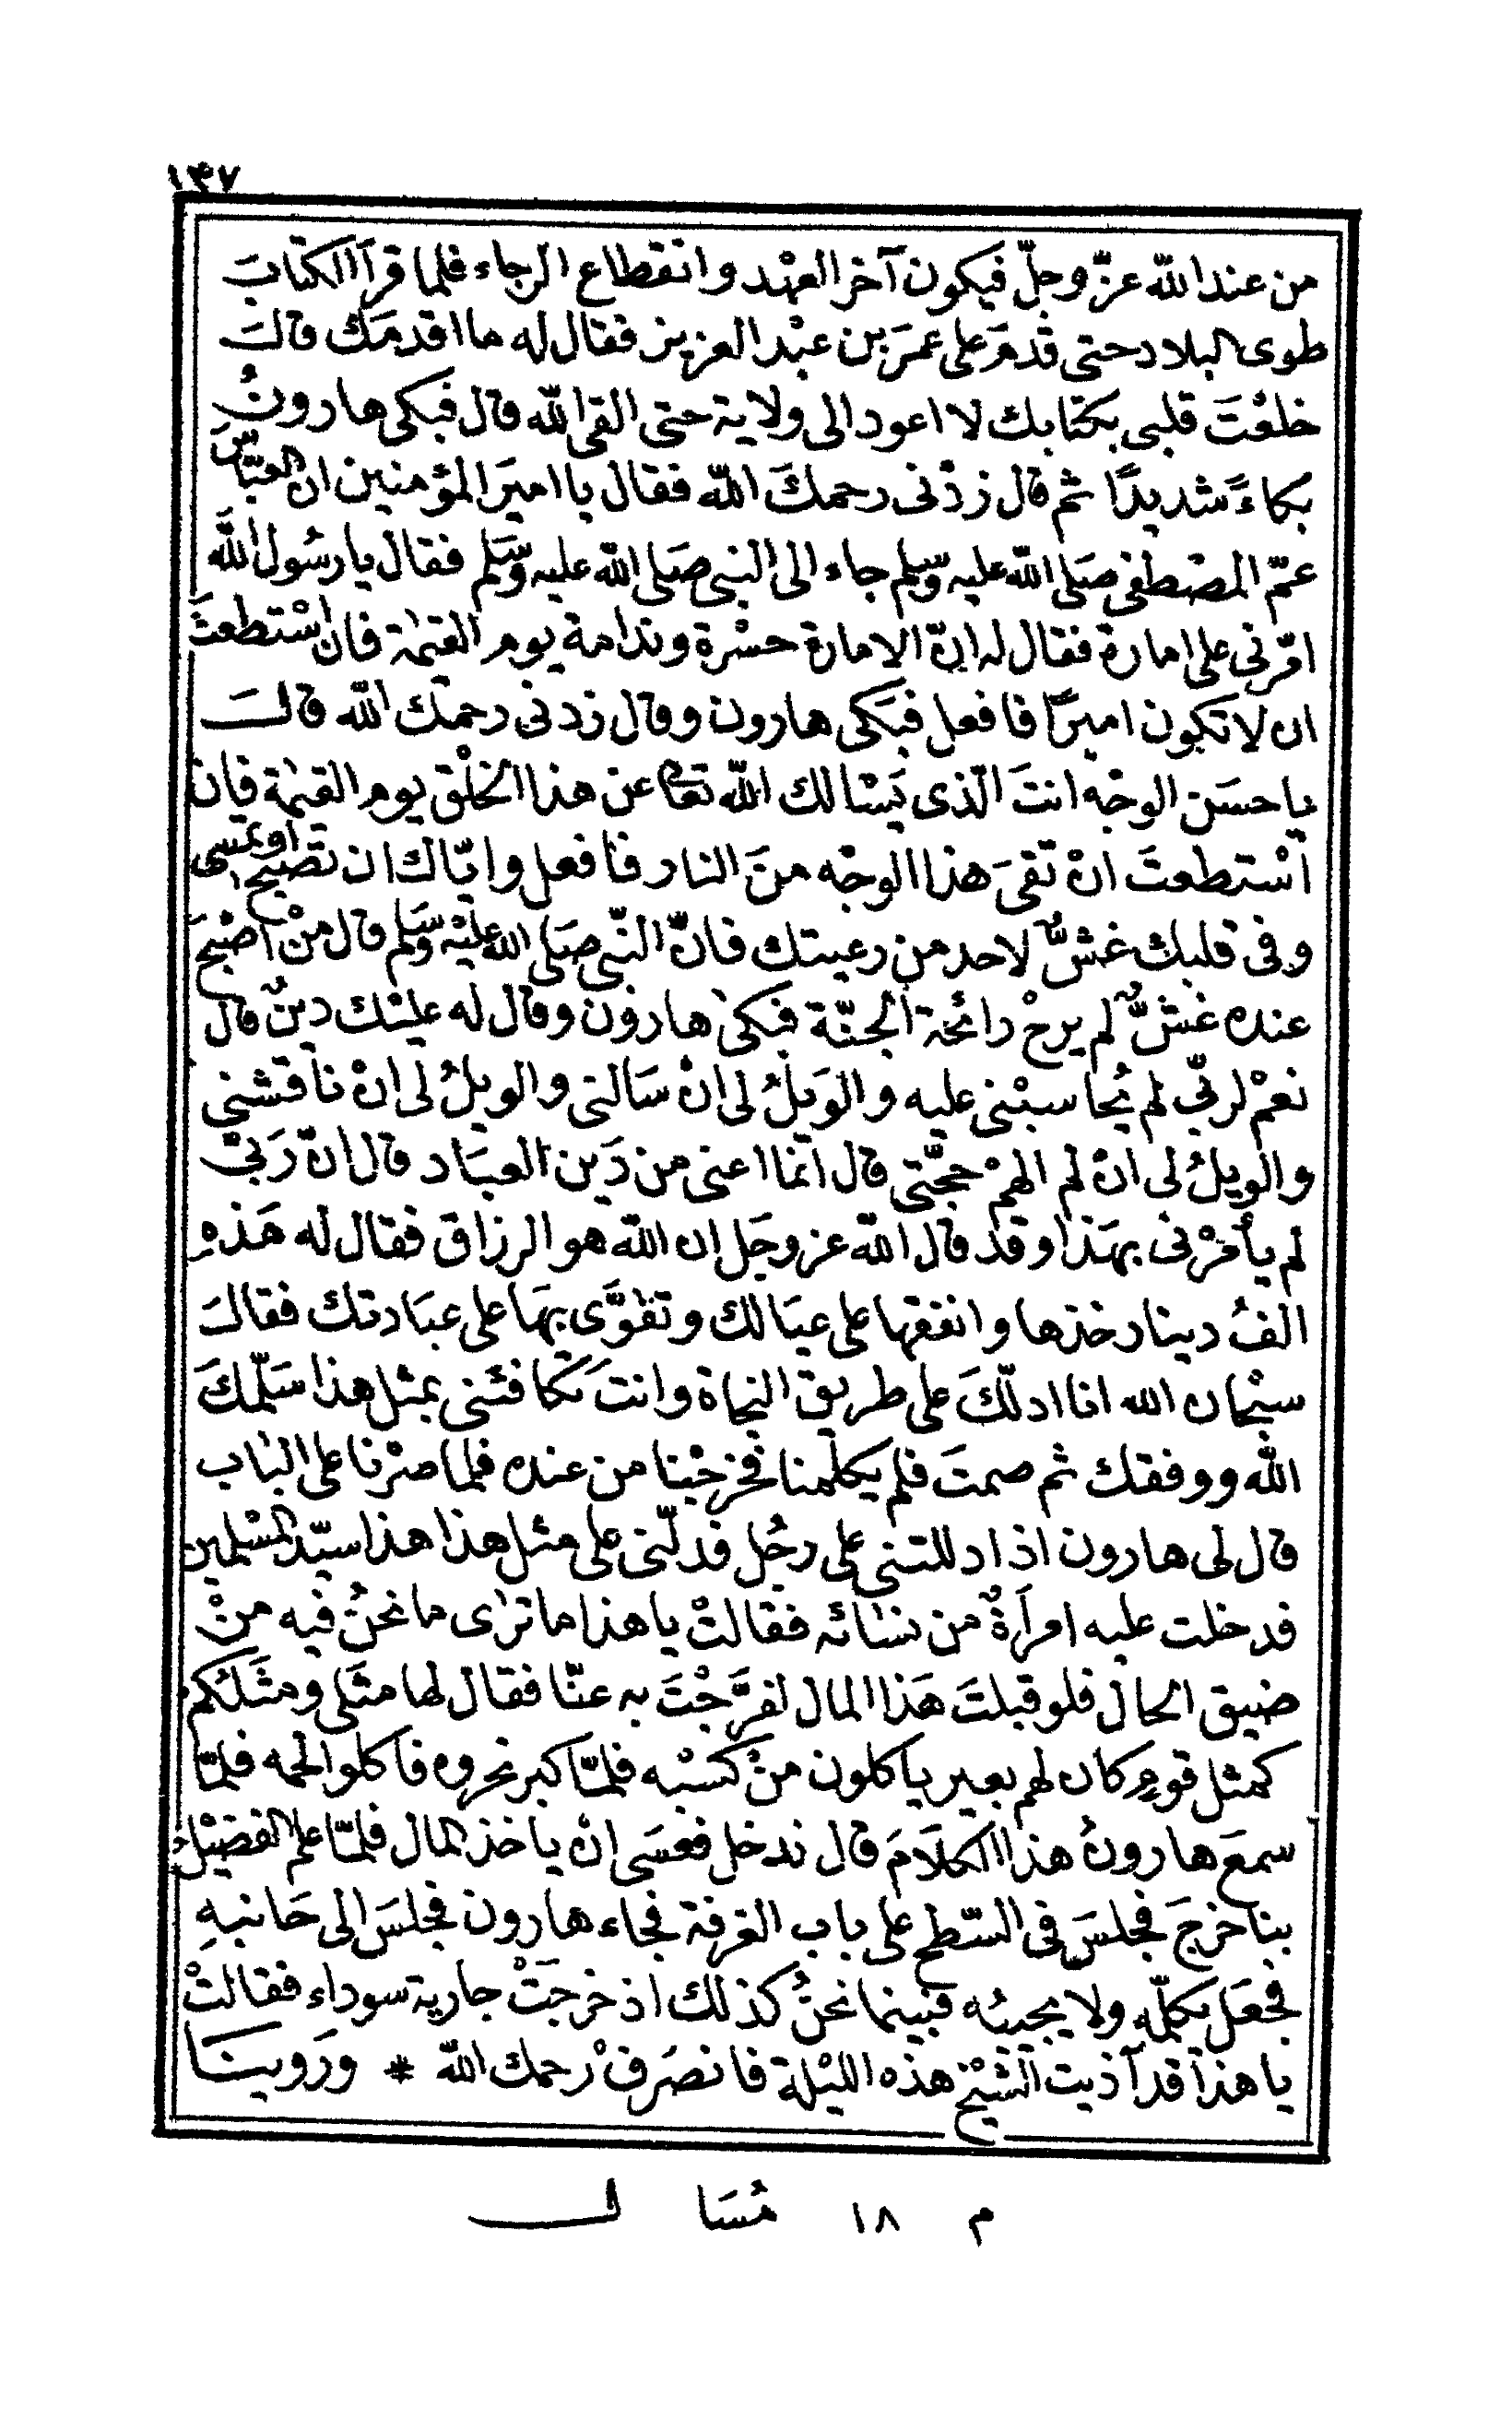 ١٣٧
من عند الله عزّ وجلّ فيكون آخر العهْد وانقطاع الرجاء فلما قرأ الكتابَ
طوى البلاد حتى قدمَ على عمرَ بن عبْد العزيز فقال له ما اقدمَك قالَ
خلعْتَ قلبي بكتابك لا اعود الى ولاية حتى القى الله قال فبكى هارونُ
بكاءً شديدًا ثم قال زدْنى رحمكَ الله فقال يا اميرَ المؤمنين ان العبّاسَ
عمّ المصْطفى صَلى الله عليه وسَلم جاء الى النبى صَلى الله عليه وسَلم فقال يا رسُول اللهَ
امّرنى على امارة فقال له انّ الامارة حسْرة وندامة يوم القيمٰة فان اسْتطعتَ
ان لا تكون اميرًا فافعل فبَكى هارون وقال زدنى رحمك الله قالَ
يا حسَن الوجْه انتَ الّذى يَسْالك الله تعا عن هذا الخلْق يوم القيمٰة فان
اسْتطعتَ انْ تَقىَ هذا الوجْه منَ النار فافعل وايّاك ان تصْبح اوتمسى
وفى قلبك غشٌّ لاحد من رعيتك فانّ النّبى صَلى الله عليْه وسَلم قال منْ اصْبحَ
عنده غشٌّ لم يرحْ رائحة الجنّة فبكىٰ هارون وقال له عليْك دينٌ قال
نعمْ لربّى لم يُحاسبْنى عليه والوَيلُ لى انْ سَالنى والويلُ لى انْ ناقشنى
والويلُ لى انْ لم الهمْ حجّتى قال انّما اعنى من دَين العبَاد قال انّ رَبّى
لم يأمرْنى بهَذا وقد قال الله عز وجَل ان الله هو الرزاق فقال له هَذهِ
الفُ دينار خذها وانفقها على عيَالك وتقوَّى بهَا على عبَادتك فقالَ
سبْحان الله انا ادلّكَ على طريق النجاة وانتَ تكافئنى بمثل هذا سَلّمكَ
الله ووفقك ثم صمتَ فلم يكلّمنا فخرجْنا من عنده فلما صرْنا على البٰاب
قال لى هارون اذا دللتنى على رجُل فدلّنى على مثل هذا هذا سيّد المسْلمين
فدخلت عليه امرَاةٌ من نسٰائه فقالتْ يا هذا ما ترٰى ما نحنُ فيه منْ
ضيق الحال فلو قبلتَ هَذا المال لفرَّجْتَ به عنّا فقال لها مثَلى ومثَلكُم
كمثل قومٍ كان لهم بعير ياكلون منْ كسْبه فلمّا كبر نحروه فاكلوا لحمه فلمّا
سمعَ هارونُ هذا الكلَامَ قال ندخل فعسَى انْ ياخذ المال فلمّا علم الفضيْلُ
بنا خرجَ فجلسَ فى السّطح على باب الغرفة فجاء هارون فجلسَ الى جَانبهِ
فجعَل يكلّمه ولا يجيبُه فبينما نحنُ كذلك اذ خرجَتْ جارية سوداء فقالتْ
يا هذا قد آذيت الشيْخ هذه الليْلة فانصَرفْ رحمك الله * ورَوينَا
م ١٨ مُسَا لـ